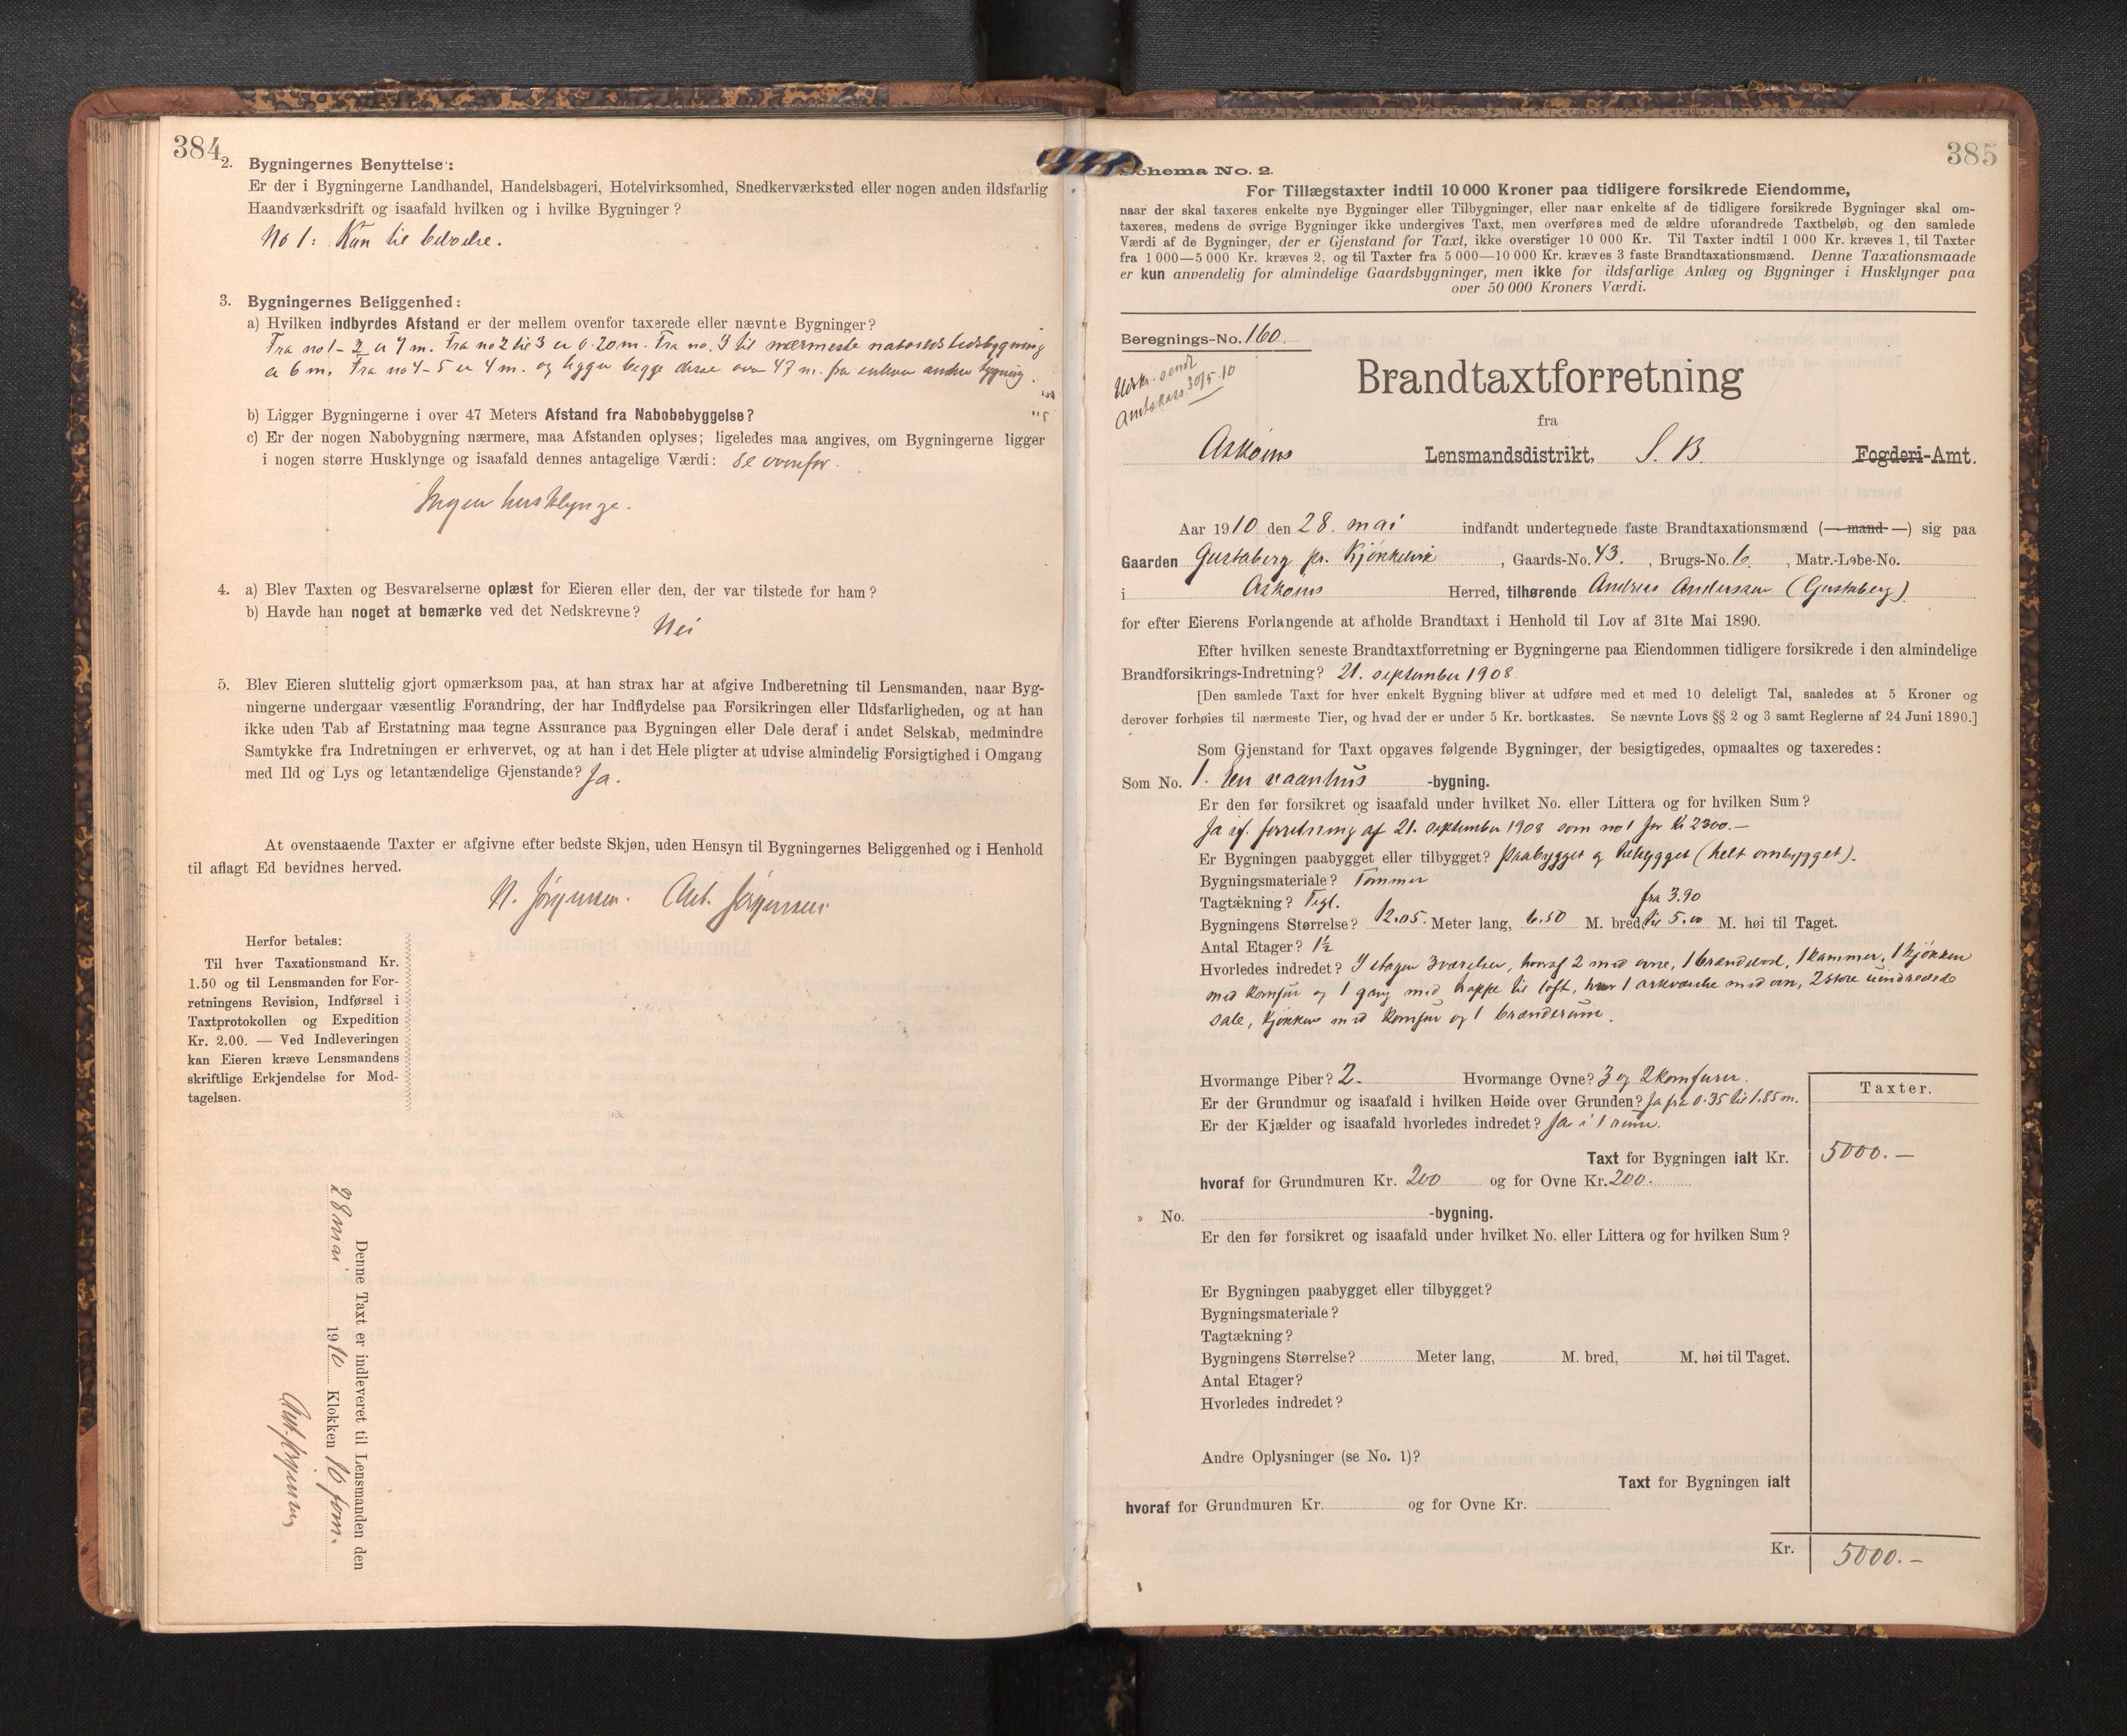 384
2. Bygningernes Benyttelse:
Er der i Bygningerne Landhandel, Handelsbageri, Hotelvirksomhed, Snedkerværksted eller nogen anden ildsfarlig
Haandværksdrift og isaafald hvilken og i hvilke Bygninger?
No 1: Kun til beboelse.
3. Bygningernes Beliggenhed:
a) Hvilken indbyrdes Afstand er der mellem ovenfor taxerede eller nævnte Bygninger?
Fra no 1 - 2 er 7 m. Fra no 2 til 3 er 0.20 m. Fra no. 3 til nærmeste
er 6 m. Fra no 4 - 5 er 4 m. og ligger begge disse over 47 m. fra enhver anden bygning.
b) Ligger Bygningerne i over 47 Meters Afstand fra Nabobebyggelse?
c) Er der nogen Nabobygning nærmere, maa Afstanden oplyses; ligeledes maa angives, om Bygningerne ligger
i nogen større Husklynge og isaafald dennes antagelige Værdi: Se ovenfor.
Ingen husklynge.
4. a) Blev Taxten og Besvarelserne oplæst for Eieren eller den, der var tilstede for ham?
b) Havde han noget at bemærke ved det Nedskrevne?
Nei
5. Blev Eieren sluttelig gjort opmærksom paa, at han strax har at afgive Indberetning til Lensmanden, naar Byg-
ningerne undergaar væsentlig Forandring, der har Indflydelse paa Forsikringen eller Ildsfarligheden, og at han
ikke uden Tab af Erstatning maa tegne Assurance paa Bygningen eller Dele deraf i andet Selskab, medmindre
Samtykke fra Indretningen er erhvervet, og at han i det Hele pligter at udvise almindelig Forsigtighed i Omgang
med Ild og Lys og letantændelige Gjenstande? Ja.
At ovenstaaende Taxter er afgivne efter bedste Skjøn, uden Hensyn til Bygningernes Beliggenhed og i Henhold
til aflagt Ed bevidnes herved.
N. Jørgensen. Ant. Jørgensen
Herfor betales:
Til hver Taxationsmand Kr.
1.50 og til Lensmanden for For-
retningens Revision, Indførsel i
Taxtprotokollen og Expedition
Kr. 2.00. — Ved Indleveringen
kan Eieren kræve Lensmandens
skriftlige Erkjendelse for Mod-
tagelsen.
Denne Taxt er indleveret til Lensmanden den
28 mai 1910 Klokken 10 form.
Ant. Jørgensen
385
Schema No. 2.
For Tillægstaxter indtil 10 000 Kroner paa tidligere forsikrede Eiendomme,
naar der skal taxeres enkelte nye Bygninger eller Tilbygninger, eller naar enkelte af de tidligere forsikrede Bygninger skal om-
taxeres, medens de øvrige Bygninger ikke undergives Taxt, men overføres med de ældre uforandrede Taxtbeløb, og den samlede
Værdi af de Bygninger, der er Gjenstand for Taxt, ikke overstiger 10 000 Kr. Til Taxter indtil 1 000 Kr. kræves 1, til Taxter
fra 1 000—5 000 Kr. kræves 2, og til Taxter fra 5 000—10 000 Kr. kræves 3 faste Brandtaxationsmænd. Denne Taxationsmaade
er kun anvendelig for almindelige Gaardsbygninger, men ikke for ildsfarlige Anlæg og Bygninger i Husklynger paa
over 50 000 Kroners Værdi.
Beregnings-No. 160.
Utskr. sendt
30/5.10
Brandtaxtforretning
fra
Askøens Lensmandsdistrikt, S. B. Fogderi-Amt.
Aar 1910 den 28. mai indfandt undertegnede faste Brandtaxationsmænd (— mand —) sig paa
Gaarden Gustaberg pr. Kjøkkelvik, Gaards-No. 43., Brugs-No. 6, Matr.-Løbe-No.
i Askøens Herred, tilhørende Andreas Anderssen (Gustaberg)
for efter Eierens Forlangende at afholde Brandtaxt i Henhold til Lov af 31te Mai 1890.
Efter hvilken seneste Brandtaxtforretning er Bygningerne paa Eiendommen tidligere forsikrede i den almindelige
Brandforsikrings-Indretning? 21. september 1908.
[Den samlede Taxt for hver enkelt Bygning bliver at udføre med et med 10 deleligt Tal, saaledes at 5 Kroner og
derover forhøies til nærmeste Tier, og hvad der er under 5 Kr. bortkastes. Se nævnte Lovs §§ 2 og 3 samt Reglerne af 24 Juni 1890.]
Som Gjenstand for Taxt opgaves følgende Bygninger, der besigtigedes, opmaaltes og taxeredes:
Som No. 1. En vaanhus -bygning.
Er den før forsikret og isaafald under hvilket No. eller Littera og for hvilken Sum?
Ja if. forretning af 21. september 1908 som no 1 for Kr 2300.—
Er Bygningen paabygget eller tilbygget? Paabygget og tilbygget (helt ombygget).
Bygningsmateriale? Tømmer
Tagtækning? Tegl.
fra 3.90
Bygningens Størrelse? 12.05. Meter lang, 6.50 M. bred, til 5.00 M. høi til Taget.
Antal Etager? 1½
Hvorledes indredet? I etagen 3 værelser, hvoraf 2 med ovne, 1 brændebod, 1 kammer, 1 kjøkken
med komfur og 1 gang med trappe til loft, hvor 1 arkværelse med ovn, 2 store uindredede
sale, kjøkken med komfur og 1 brænderum.
Hvormange Piber? 2. Hvormange Ovne? 3 og 2 komfurer.
Er der Grundmur og isaafald i hvilken Høide over Grunden? Ja fra 0.35 til 1.85 m.
Er der Kjælder og isaafald hvorledes indredet? Ja i 1 rum.
Taxter.
Taxt for Bygningen ialt Kr. 5000.—
hvoraf for Grundmuren Kr. 200 og for Ovne Kr. 200.
» No. -bygning.
Er den før forsikret og isaafald under hvilket No. eller Littera og for hvilken Sum?
Er Bygningen paabygget eller tilbygget?
Bygningsmateriale?
Tagtækning?
Bygningens Størrelse? Meter lang, M. bred, M. høi til Taget.
Antal Etager?
Hvorledes indredet?
Andre Oplysninger (se No. 1)?
Taxt for Bygningen ialt
hvoraf for Grundmuren Kr. og for Ovne Kr.
Kr. 5000.—